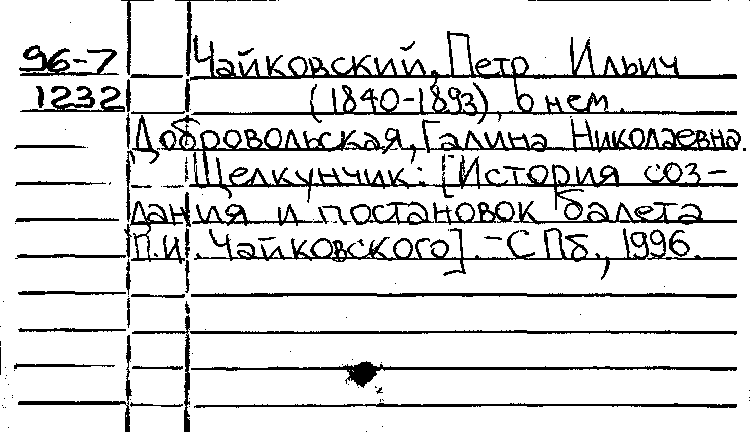 96-7 Чайковский, Петр Ильич
1232 (1840-1893), о нем.
Добровольская, Галина Николаевна.
Щелкунчик: [История соз-
дания и постановок балета
П.И. Чайковского]. - СПб., 1996.